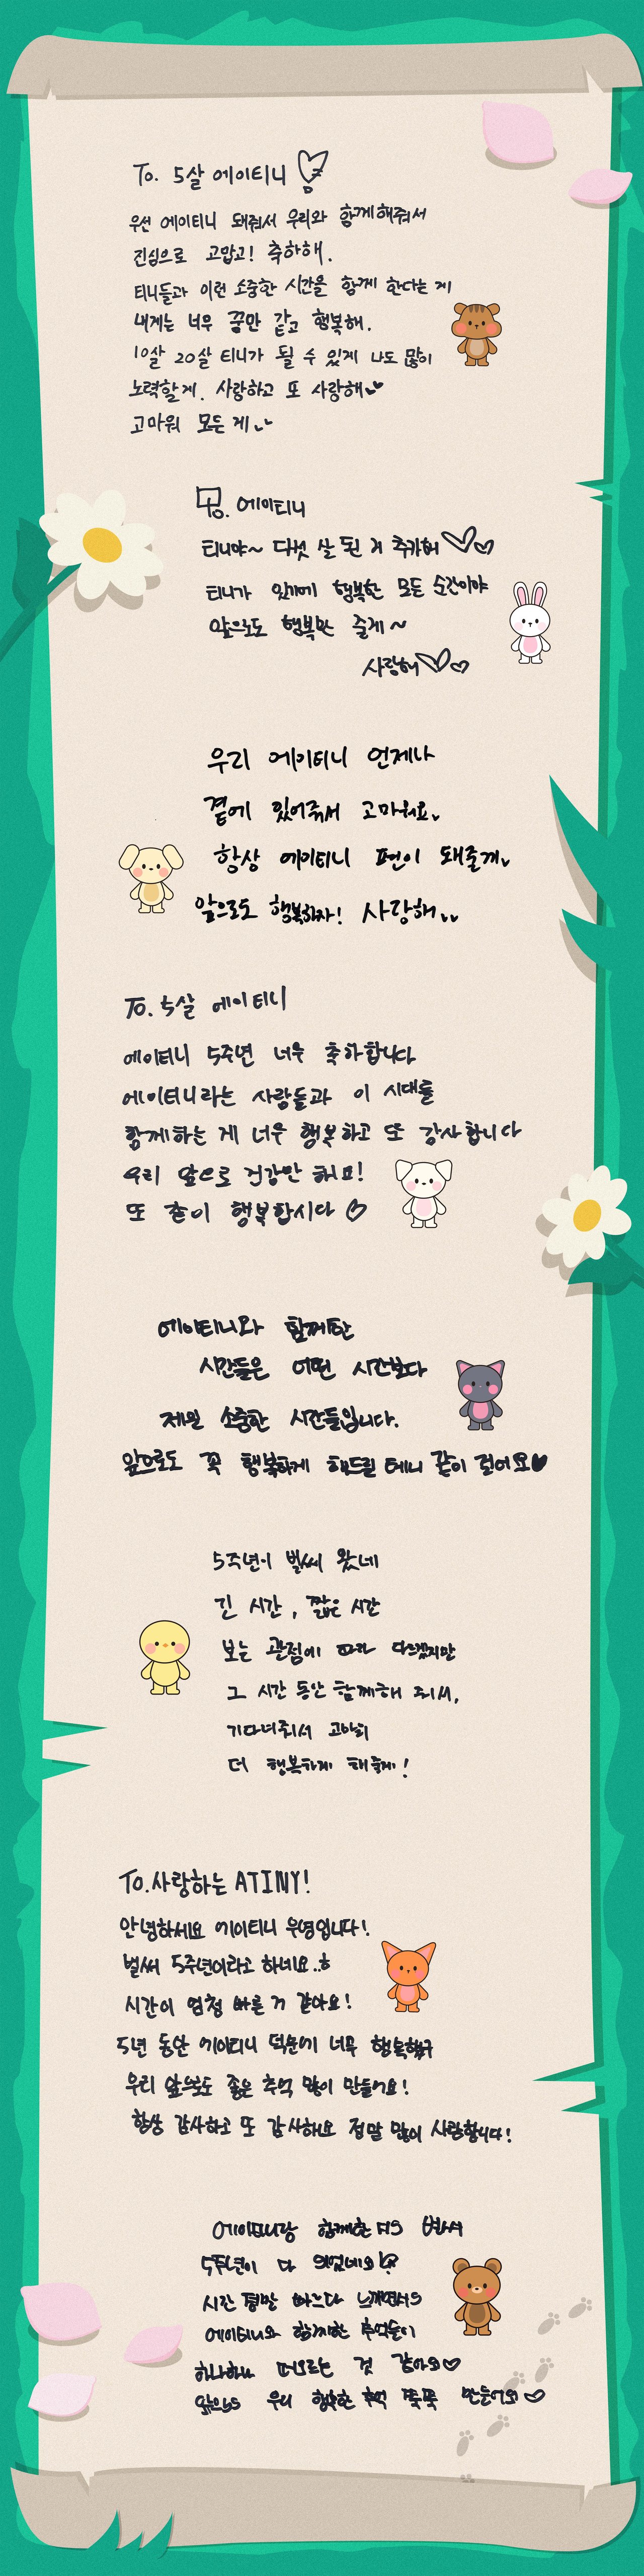 To. 5살 에이티니
우선 에이티니 돼줘서 우리와 함께해줘서
진심으로 고맙고! 축하해.
티니들과 이런 소중한 시간을 함께 한다는 게
내게는 너무 꿈만 같고 행복해.
10살 20살 티니가 될 수 있게 나도 많이
노력할게. 사랑하고 또 사랑해
고마워 모든 게
To. 에이티니
티니야~ 다섯 살 된 거 추카해
티니가 있기에 행복한 모든 순간이야
앞으로도 행복만 줄게~
사랑해
우리 에이티니 언제나
곁에 있어줘서 고마워요
항상 에이티니 편이 돼줄게
앞으로도 행복하자! 사랑해
To. 5살 에이티니
에이티니 5주년 너무 축하합니다
에이티니라는 사람들과 이 시대를
함께하는 게 너무 행복하고 또 감사합니다
우리 앞으로 건강만 하고!
또 같이 행복합시다
에이티니와 함께한
시간들은 어떤 시간보다
제일 소중한 시간들입니다.
앞으로도 꼭 행복하게 해드릴 테니 같이 걸어요
5주년이 벌써 왔네
긴 시간, 짧은 시간
보는 관점에 따라 다르겠지만
그 시간 동안 함께해 줘서,
기다려줘서 고마워
더 행복하게 해줄게!
To. 사랑하는 ATINY!
안녕하세요 에이티니 우영입니다!
벌써 5주년이라고 하네요..ㅎ
시간이 엄청 빠른 거 같아요!
5년 동안 에이티니 덕분에 너무 행복했구
우리 앞으로도 좋은 추억 많이 만들어요!
항상 감사하고 또 감사해요 정말 많이 사랑합니다!
에이티니랑 함께한 지 벌써
5주년이 다 되었네요!?
시간 정말 빠르다 느끼면서
에이티니와 함께한 추억들이
하나하나 떠오르는 것 같아요
앞으로 우리 행복한 추억 쭉쭉 만들어요